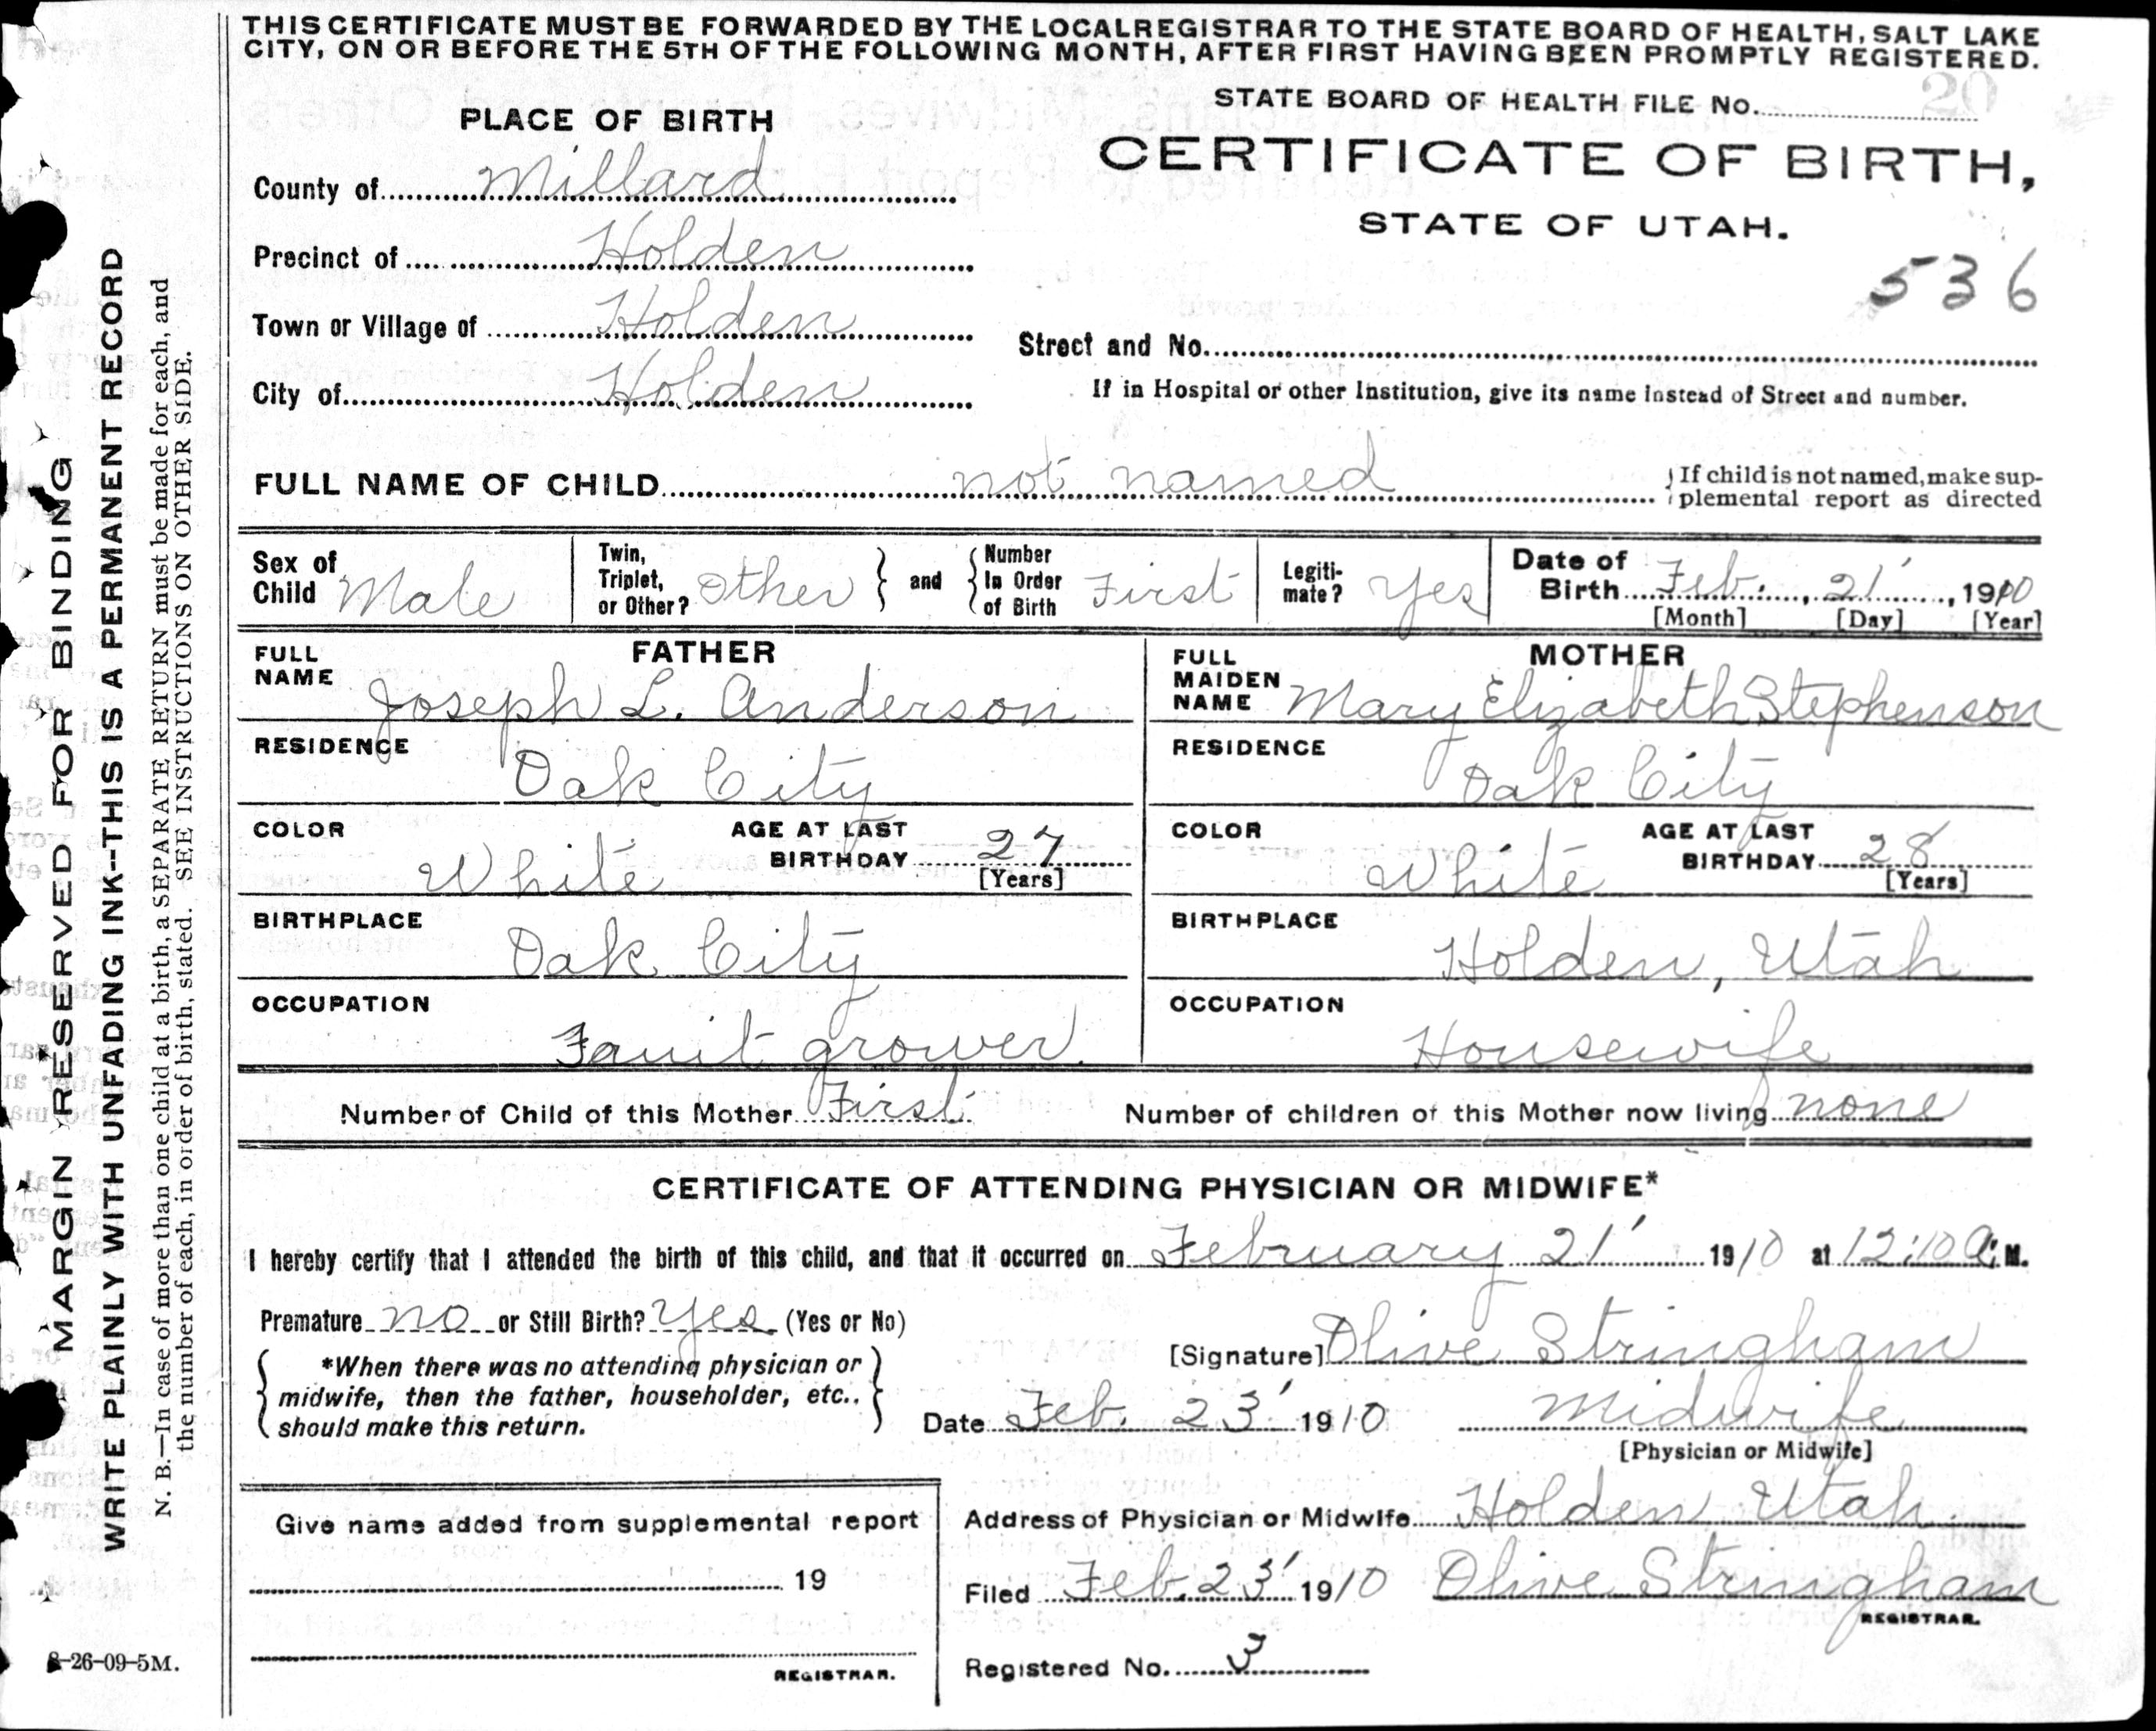 THIS CERTIFICATE MUST BE FORWARDED BY THE LOCALREGISTRAR TO THE STATE BOARD OF HEALTH, SALT LAKE
CITY, ON OR BEFORE THE 5TH OF THE FOLLOWING MONTH, AFTER FIRST HAVING BEEN PROMPTLY REGISTERED.
STATE BOARD OF HEALTH FILE No. 20
PLACE OF BIRTH
CERTIFICATE OF BIRTH,
STATE OF UTAH.
County of Millard
Precinct of Holden
536
Town or Village of Holden
Street and No.
City of Holden
If in Hospital or other Institution, give its name instead of Street and number.
FULL NAME OF CHILD not named
If child is not named, make sup-
plemental report as directed
Sex of
Child Male
Twin,
Triplet,
or Other? Other
and
Number
In Order
of Birth First
Legiti-
mate? Yes
Date of
Birth Feb. , 21' , 1910
[Month] [Day] [Year]
FATHER
FULL
NAME Joseph L. Anderson
RESIDENCE Oak City
COLOR White
AGE AT LAST
BIRTHDAY 27
[Years]
BIRTHPLACE Oak City
OCCUPATION Fruit grower
MOTHER
FULL
MAIDEN
NAME Mary Elizabeth Stephenson
RESIDENCE Oak City
COLOR White
AGE AT LAST
BIRTHDAY 28
[Years]
BIRTHPLACE Holden, Utah
OCCUPATION Housewife
Number of Child of this Mother First Number of children of this Mother now living none
CERTIFICATE OF ATTENDING PHYSICIAN OR MIDWIFE*
I hereby certify that I attended the birth of this child, and that it occurred on February 21' 1910 at 12:10 A. M.
Premature no or Still Birth? yes (Yes or No)
*When there was no attending physician or
midwife, then the father, householder, etc.,
should make this return.
[Signature] Olive Stringham
Date Feb. 23' 1910 Midwife
[Physician or Midwife]
Give name added from supplemental report
19
REGISTRAR.
Address of Physician or Midwife Holden Utah
Filed Feb. 23' 1910 Olive Stringham
REGISTRAR.
Registered No. 3
MARGIN RESERVED FOR BINDING
WRITE PLAINLY WITH UNFADING INK--THIS IS A PERMANENT RECORD
N. B.—In case of more than one child at a birth, a SEPARATE RETURN must be made for each, and
the number of each, in order of birth, stated. SEE INSTRUCTIONS ON OTHER SIDE.
8-26-09-5M.